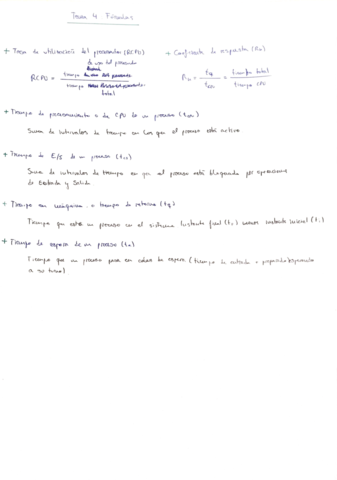 Tema 4 Fórmulas
+ Tasa de utilización del procesador (RCPU)
RCPU = tiempo de uso del procesador
tiempo total
+ Coeficiente de respuesta (Rn)
Rn = = tiempo total
tiempo CPU
+ Tiempo de procesamiento o de CPU de un proceso
Suma de intervalos de tiempo en los que el proceso está activo
+ Tiempo de E/S de un proceso
Suma de intervalos de tiempo en que el proceso está bloqueado por operaciones
de Entrada y Salida
+ Tiempo en máquina o tiempo de retorno (tq)
Tiempo que está un proceso en el sistema instante final menos instante inicial
+ Tiempo de espera de un proceso
Tiempo que un proceso pasa en colas de espera (tiempo de
a su turno)